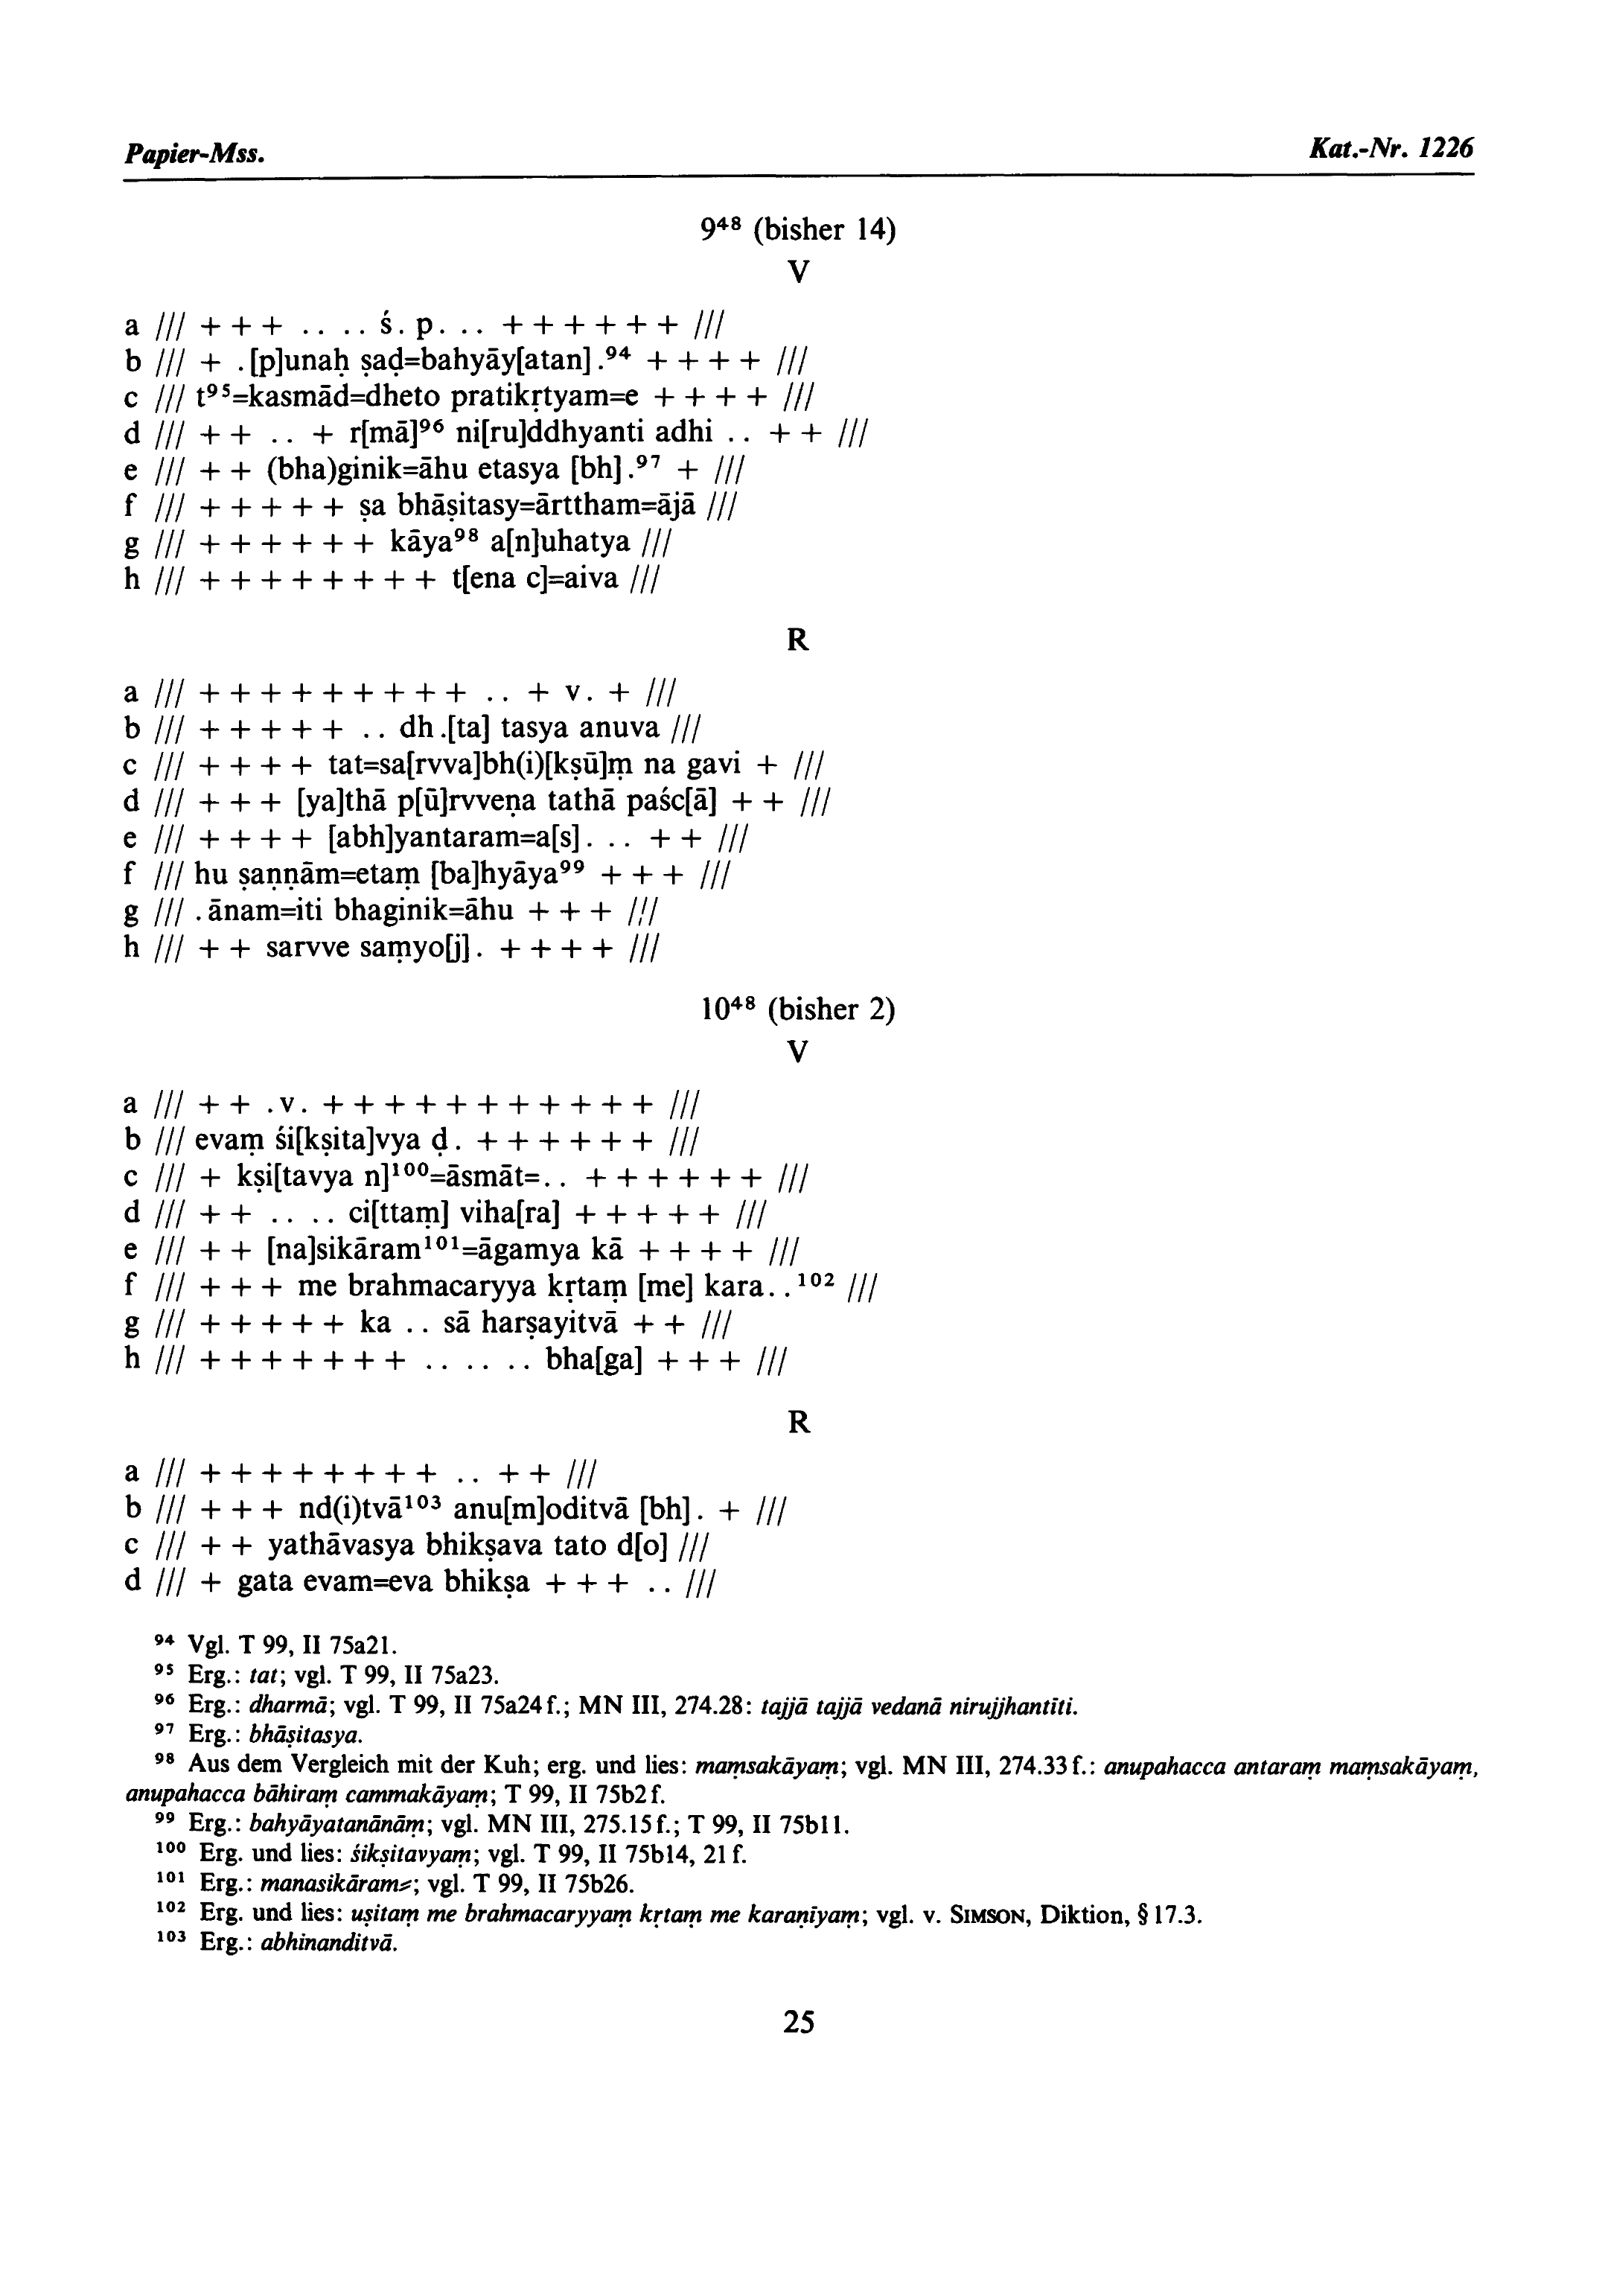 Papier-Mss.
Kat.-Nr. 1226
9⁴⁸ (bisher 14)
V
a /// + + + .. .. ś. p. .. + + + + + + ///
b /// + .[p]unaḥ ṣaḍ=bahyāy[atan] .⁹⁴ + + + + ///
c /// t⁹⁵=kasmād=dheto pratikṛtyam=e + + + + ///
d /// + + .. + r[mā]⁹⁶ ni[ru]ddhyanti adhi .. + + ///
e /// + + (bha)ginik=āhu etasya [bh] .⁹⁷ + ///
f /// + + + + + ṣa bhāṣitasy=ārttham=ājā ///
g /// + + + + + + kāya⁹⁸ a[n]uhatya ///
h /// + + + + + + + + t[ena c]=aiva ///
R
a /// + + + + + + + + + .. + v. + ///
b /// + + + + + .. dh.[ta] tasya anuva ///
c /// + + + + tat=sa[rvva]bh(i)[kṣū]ṃ na gavi + ///
d /// + + + [ya]thā p[ū]rvveṇa tathā paśc[ā] + + ///
e /// + + + + [abh]yantaram=a[s]. .. + + ///
f /// hu ṣaṇṇām=etaṃ [ba]hyāya⁹⁹ + + + ///
g /// .ānam=iti bhaginik=āhu + + + ///
h /// + + sarvve saṃyo[j]. + + + + ///
10⁴⁸ (bisher 2)
V
a /// + + .v. + + + + + + + + + + + ///
b /// evaṃ śi[kṣita]vya ḍ. + + + + + + ///
c /// + kṣi[tavya n]¹⁰⁰=āsmāt=.. + + + + + + ///
d /// + + .. .. ci[ttaṃ] viha[ra] + + + + + ///
e /// + + [na]sikāram¹⁰¹=āgamya kā + + + + ///
f /// + + + me brahmacaryya kṛtaṃ [me] kara..¹⁰² ///
g /// + + + + + ka .. sā harṣayitvā + + ///
h /// + + + + + + + .. .. .. bha[ga] + + + ///
R
a /// + + + + + + + + .. + + ///
b /// + + + nd(i)tvā¹⁰³ anu[m]oditvā [bh]. + ///
c /// + + yathāvasya bhikṣava tato d[o] ///
d /// + gata evam=eva bhikṣa + + + .. ///
⁹⁴ Vgl. T 99, II 75a21.
⁹⁵ Erg.: tat; vgl. T 99, II 75a23.
⁹⁶ Erg.: dharmā; vgl. T 99, II 75a24 f.; MN III, 274.28: tajjā tajjā vedanā nirujjhantīti.
⁹⁷ Erg.: bhāṣitasya.
⁹⁸ Aus dem Vergleich mit der Kuh; erg. und lies: maṃsakāyaṃ; vgl. MN III, 274.33 f.: anupahacca antaraṃ maṃsakāyaṃ,
anupahacca bāhiraṃ cammakāyaṃ; T 99, II 75b2 f.
⁹⁹ Erg.: bahyāyatanānāṃ; vgl. MN III, 275.15 f.; T 99, II 75b11.
¹⁰⁰ Erg. und lies: śikṣitavyaṃ; vgl. T 99, II 75b14, 21 f.
¹⁰¹ Erg.: manasikāram=; vgl. T 99, II 75b26.
¹⁰² Erg. und lies: uṣitaṃ me brahmacaryyaṃ kṛtaṃ me karaṇīyaṃ; vgl. v. SIMSON, Diktion, § 17.3.
¹⁰³ Erg.: abhinanditvā.
25